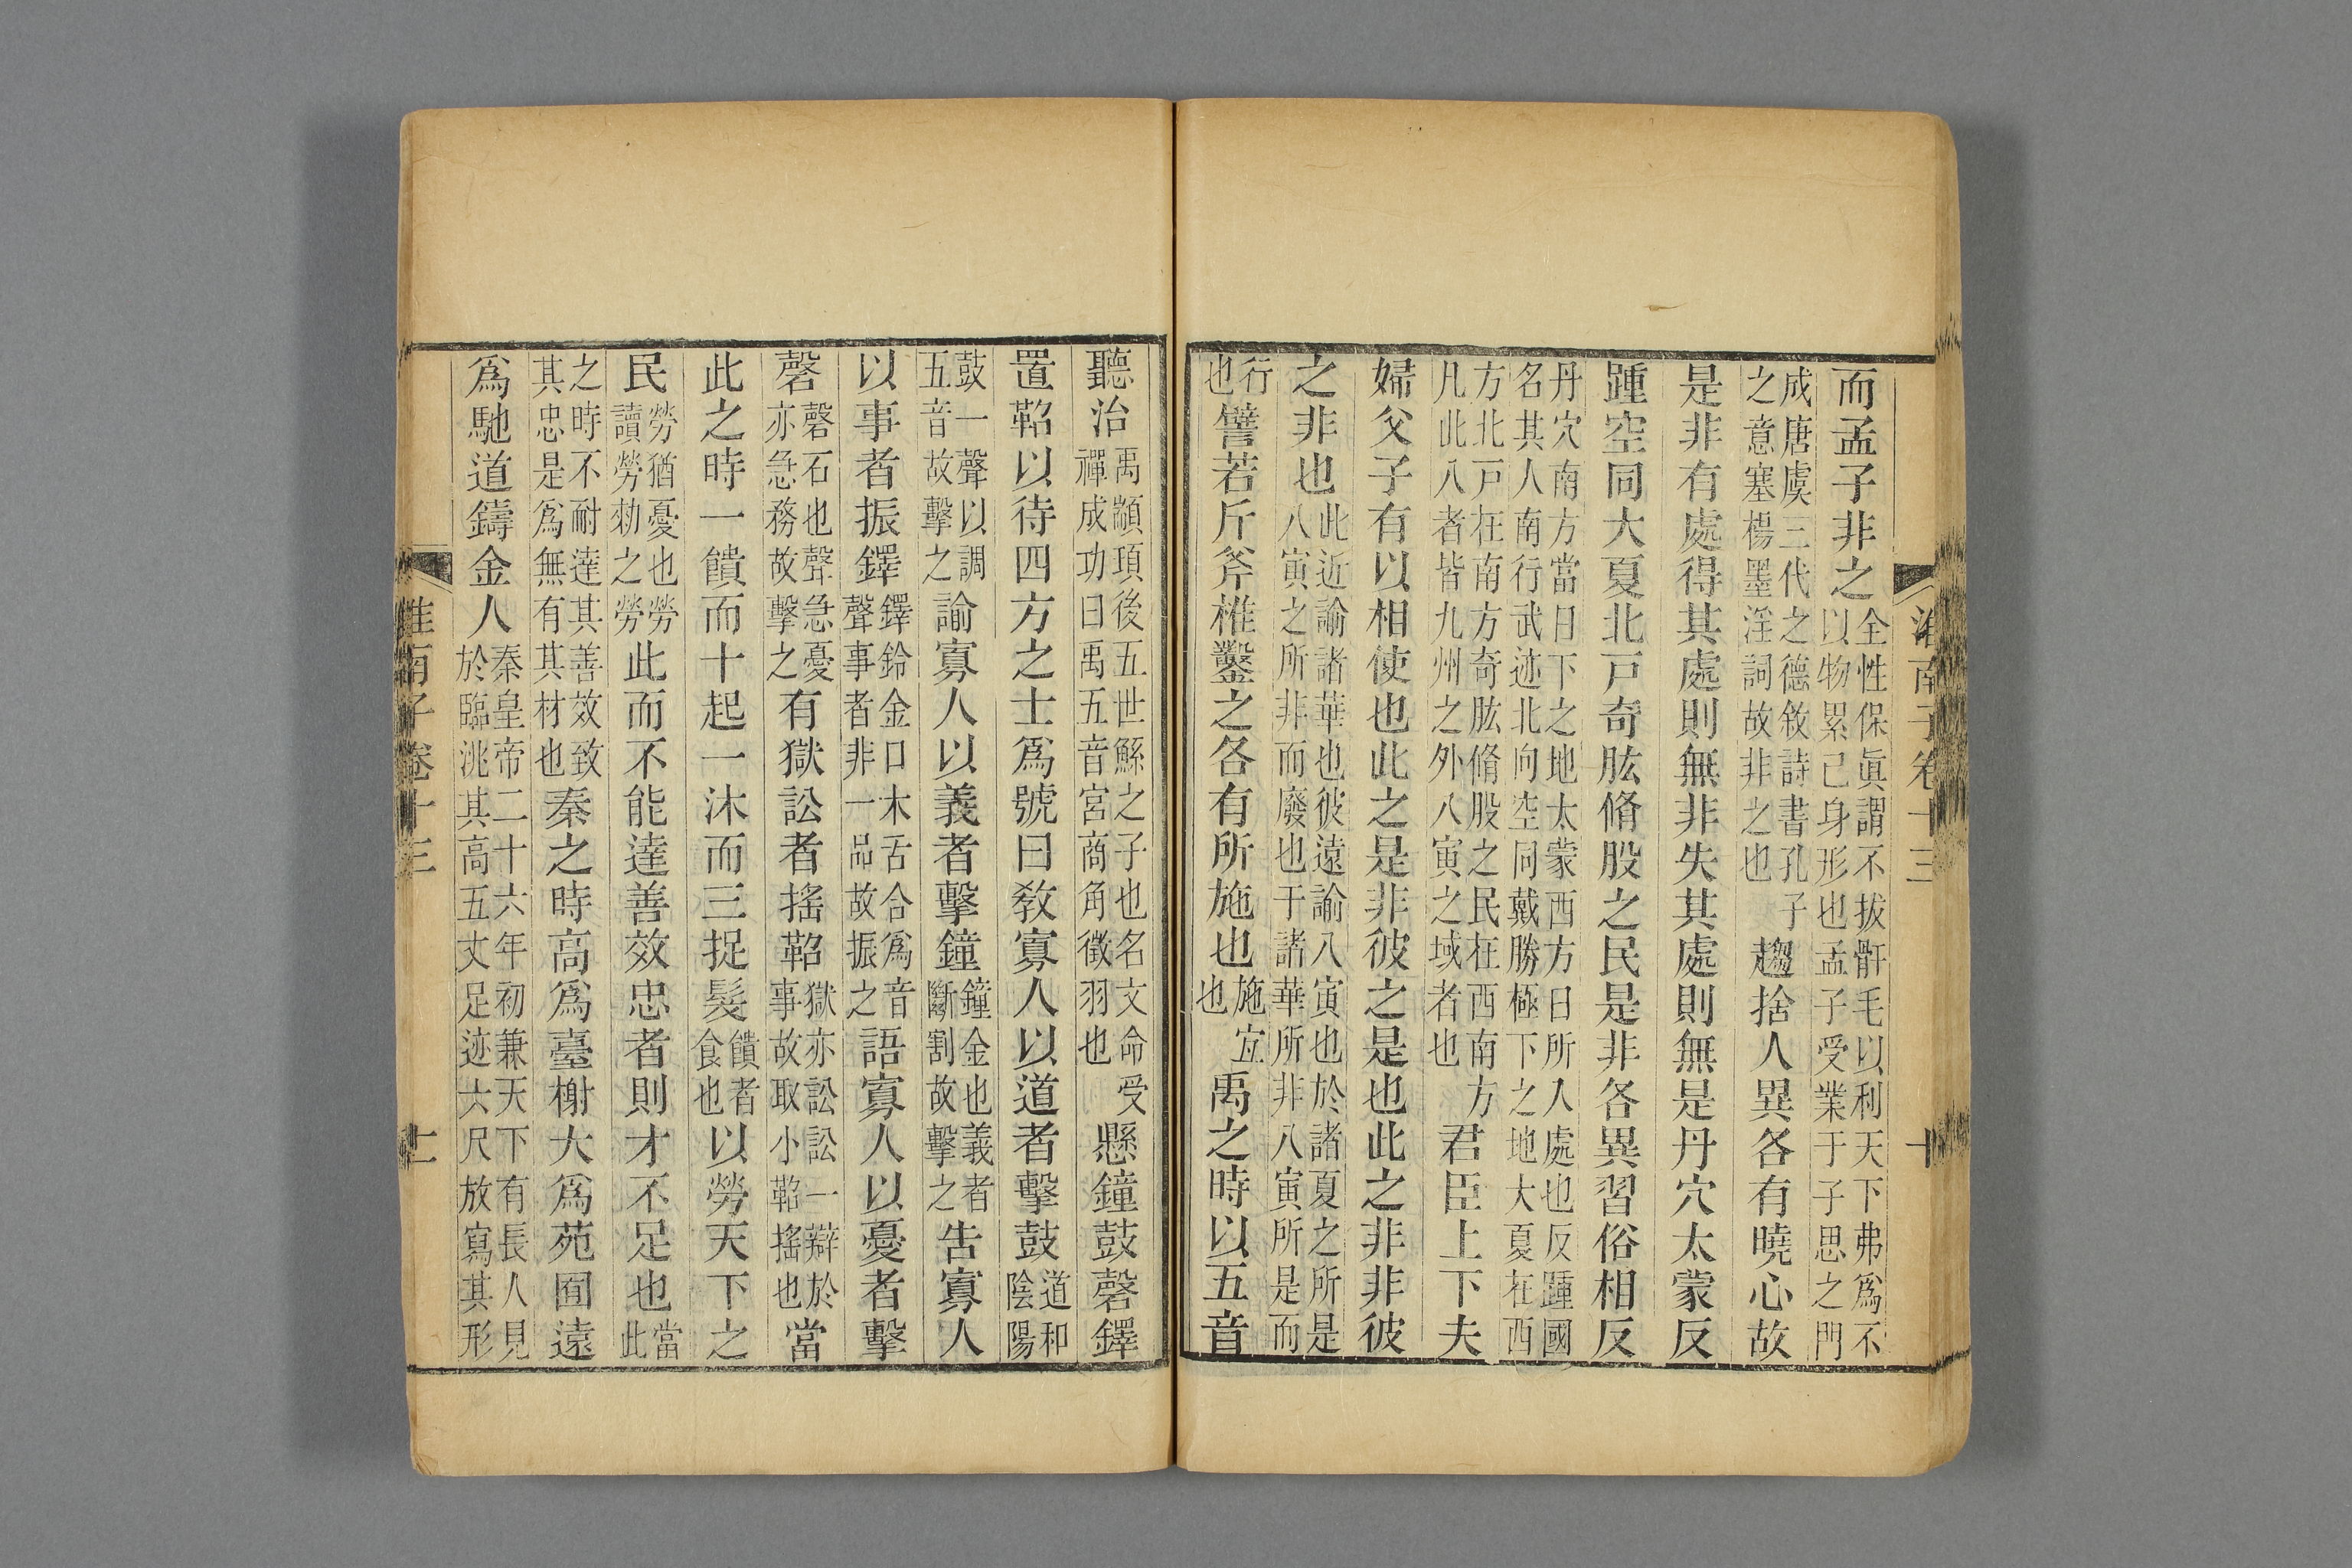 淮南子卷十三 十
而孟子非之全性保眞謂不拔骭毛以利天下弗爲不以物累己身形也孟子受業于子思之門
成唐虞三代之德敘詩書孔子之意塞楊墨淫詞故非之也趨捨人異各有曉心故
是非有處得其處則無非失其處則無是丹穴太蒙反
踵空同大夏北戸奇肱脩股之民是非各異習俗相反
丹穴南方當日下之地太蒙西方日所人處也反踵國名其人南行武迹北向空同戴勝極下之地大夏在西
方北戸在南方奇肱脩股之民在西南方凡此八者皆九州之外八寅之域者也君臣上下夫
婦父子有以相使也此之是非彼之是也此之非非彼
之非也此近諭諸華也彼遠諭八寅也於諸夏之所是八寅之所非而廢也于諸華所非八寅所是而
行也譬若斤斧椎鑿之各有所施也施宜也禹之時以五音
聽治禹顓頊後五世鯀之子也名文命受禪成功曰禹五音宮商角徵羽也懸鐘鼓磬鐸
置鞀以待四方之士爲號曰敎寡人以道者擊鼓道和陰陽
鼓一聲以調五音故擊之諭寡人以義者擊鐘鐘金也義者斷割故擊之告寡人
以事者振鐸鐸鈴金口木舌合爲音聲事者非一品故振之語寡人以憂者擊
磬磬石也聲急憂亦急務故擊之有獄訟者搖鞀獄亦訟訟一辯於事故取小鞀搖也當
此之時一饋而十起一沐而三捉髮饋者食也以勞天下之
民勞猶憂也勞讀勞勑之勞此而不能達善效忠者則才不足也當此
之時不耐達其善效致其忠是爲無有其材也秦之時高爲臺榭大爲苑囿遠
爲馳道鑄金人秦皇帝二十六年初兼天下有長人見於臨洮其高五丈足迹六尺放寫其形
淮南子卷十三 十一